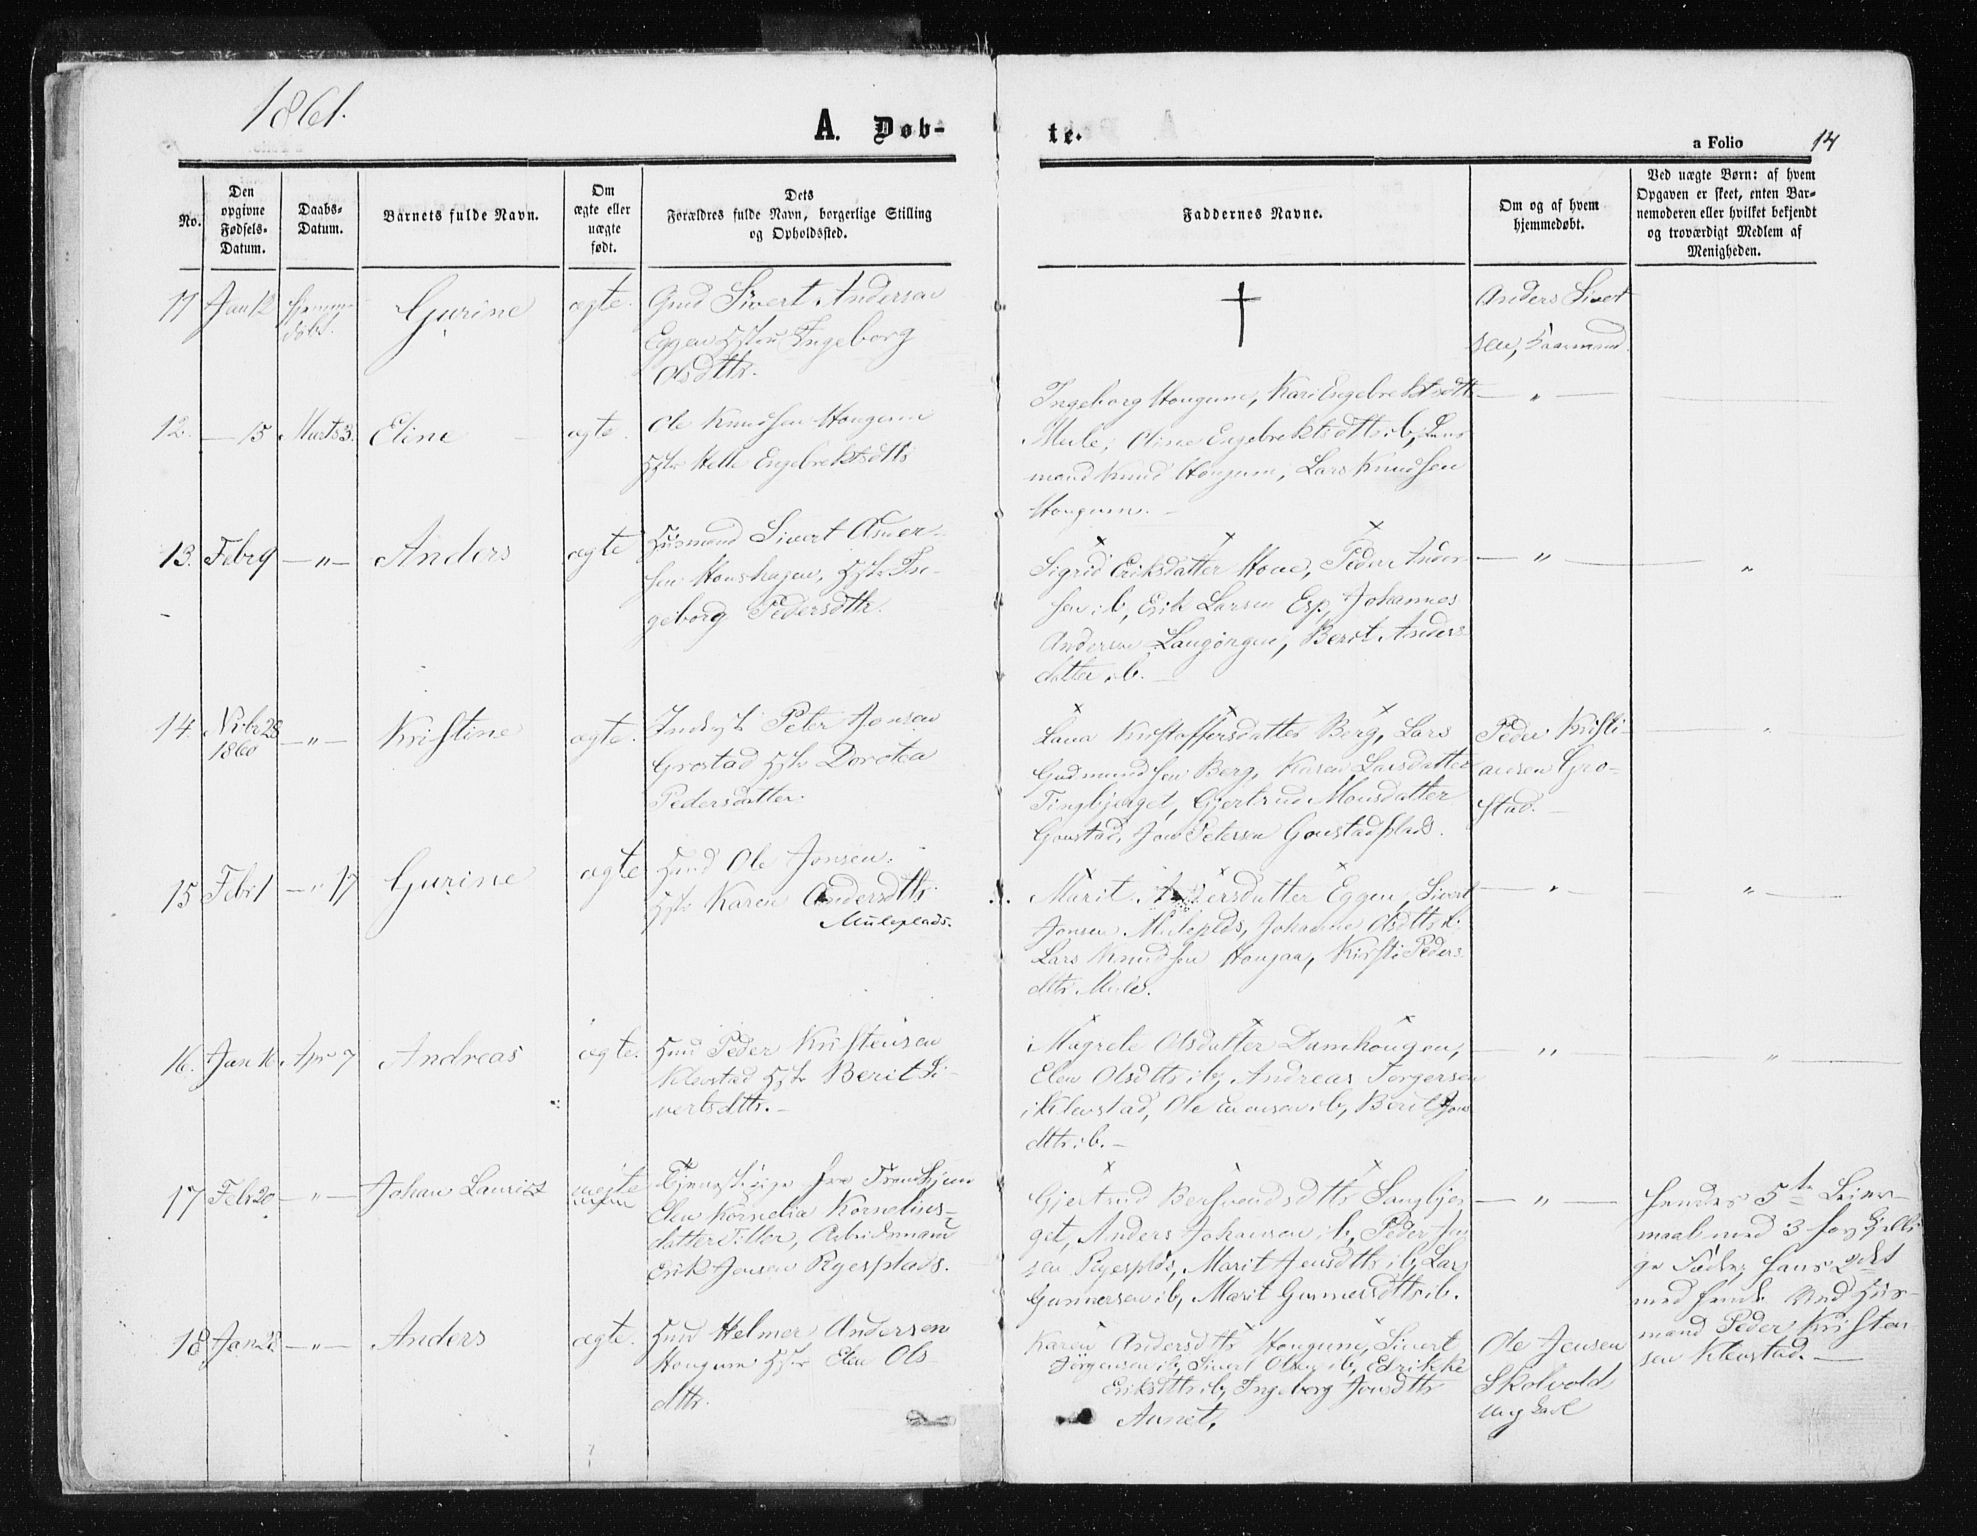 1861.
A. Døb-
te.
a Folio 14
No.
Den opgivne Fødsels-Datum.
Daabs-Datum.
Barnets fulde Navn.
Om ægte eller uægte født.
Dets Forældres fulde Navn, borgerlige Stilling og Opholdssted.
Faddernes Navne.
Om og af hvem hjemmedøbt.
Ved uægte Børn: af hvem Opgaven er skeet, enten Barnemoderen eller hvilket bekjendt og troværdigt Medlem af Menigheden.
11 Jan 12 Hjemmedøbt. Gurine ægte. Gmd Sivert Andersen
Eggen Hstru Ingeborg
Olsdttr.
† Anders Sivert
sen, Kaarmand.
12. — 15 Marts 3. Eline ægte. Ole Knudsen Hougum
Hstr Helle Engebrektsdttr
Ingeborg Hougum, Kari Engebrektsdttr — " —
Mule, Oline Engebrektsdttr ib,
mand Knud Hougum, Lars Knudsen
Hougum. —
13. Febr 9 — " — Anders ægte Husmand Sivert Asmer-
sen Houshagen, Hstr In-
geborg Pedersdttr.
Sigrid Eriksdatter Hove, Peder Ander- — " — "
sen ib, Erik Larsen Esp, Johannes
Andersen Laugørgen, Berit Anders
datter ib. —
14 Nvbr 28 1860 — " — Kristine ægte. Inderst Peter Jonsen
Grostad Hstr Dorotea
Pedersdatter.
Lava Kristoffersdatter Berg, Lars Peder Kristi-
Gudmundsen Berg, Karen Larsdatter ansen Gro-
Tingbjerget, Gjertrud Monsdatter stad. —
Grostad, Jon Petersen Grostadplads.
15 Febr 1 — " 17 Gurine ægte Hmd Ole Jonsen.
Hstr Karen Andersdttr.
Muleplads.
Marit Andersdatter Eggen, Sivert — " — "
Jonsen Muleplds, Johanna Olsdttr ib,
Lars Knudsen Hougan, Kirsti Peders
dttr Mule.
16. Jan 16 Apr 7 Andreas ægte. Hmd Peder Kristensen
Klevstad Hstr Berit Si-
vertsdttr. —
Magrete Olsdatter Damhougen, — " — "
Elen Olsdttr ib, Andreas Torgersen
Klevstad, Ole ib, Berit Jons
dttr ib. —
17 Febr 20 — " — Johan Lauritz uægte Tjenestepige fra Trondhjem
Elen Kornelia Kornelius-
datter Tiller, Arbeidsmand
Erik Jonsen Ryesplads.
Gjertrud Berhsvendsdttr Langbjer — " —
get, Anders Johansen ib, Peder Jen
sen Ryesplds, Marit Jensdttr ib, Lars
Gunnersen ib, Marit Gunnersdttr ib.
hendes 5te Leier-
maal med 3 forskjelli
ge Fædre, hans 2det
med hende. Ved Hus-
mand Peder Kristen
sen Klevstad. —
18 Jan 28 — " — Anders ægte. Hmd Helmer Andersen
Hougum Hstr Elen Ols
dttr.
Karen Andersdttr Hougum, Sivert Ole Jensen
Jørgensen ib, Sivert Olsen ib, Edrikke Skolvold,
Eriksdttr ib, Ingeborg Jonsdttr Ung Karl
Aunet.